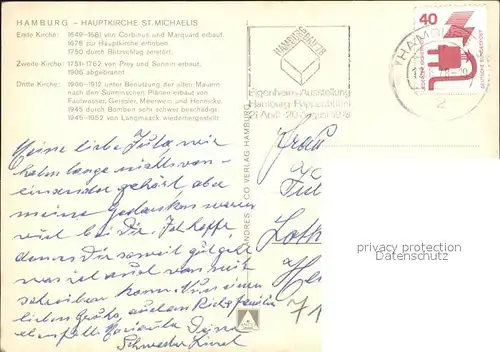 HAMBURG – HAUPTKIRCHE ST. MICHAELIS
Erste Kirche: 1649-1661 von Corbinus und Marquard erbaut.
1678 zur Hauptkirche erhoben
1750 durch Blitzschlag zerstört.
Zweite Kirche: 1751-1762 von Prey und Sonnin erbaut.
1906 abgebrannt
Dritte Kirche: 1906-1912 unter Benutzung der alten Mauern
nach den Sonninschen Plänen erbaut von
Faulwasser, Geissler, Meerwein und Hennicke.
1945 durch Bomben sehr schwer beschädigt
1945-1952 von Langmaack wiederhergestellt
HAMBURG 78
Eigenheim-Ausstellung
Hamburg-Poppenbüttel
21. April - 20. August 1978
HAMBURG
2
40
DEUTSCHE BUNDESPOST
ANDRES + CO VERLAG HAMBURG
Meine liebe Jula, wir
haben lange nichts von-
einander gehört, aber
meine Gedanken waren
viel bei Dir. Ich hoffe,
dass es Dir soweit gut geht
was ich auch von mir
schreiben kann. Nun einen
lieben Gruß, auch an
ebenfalls Deine
Schwester
Frau
71
privacy protection
Datenschutz